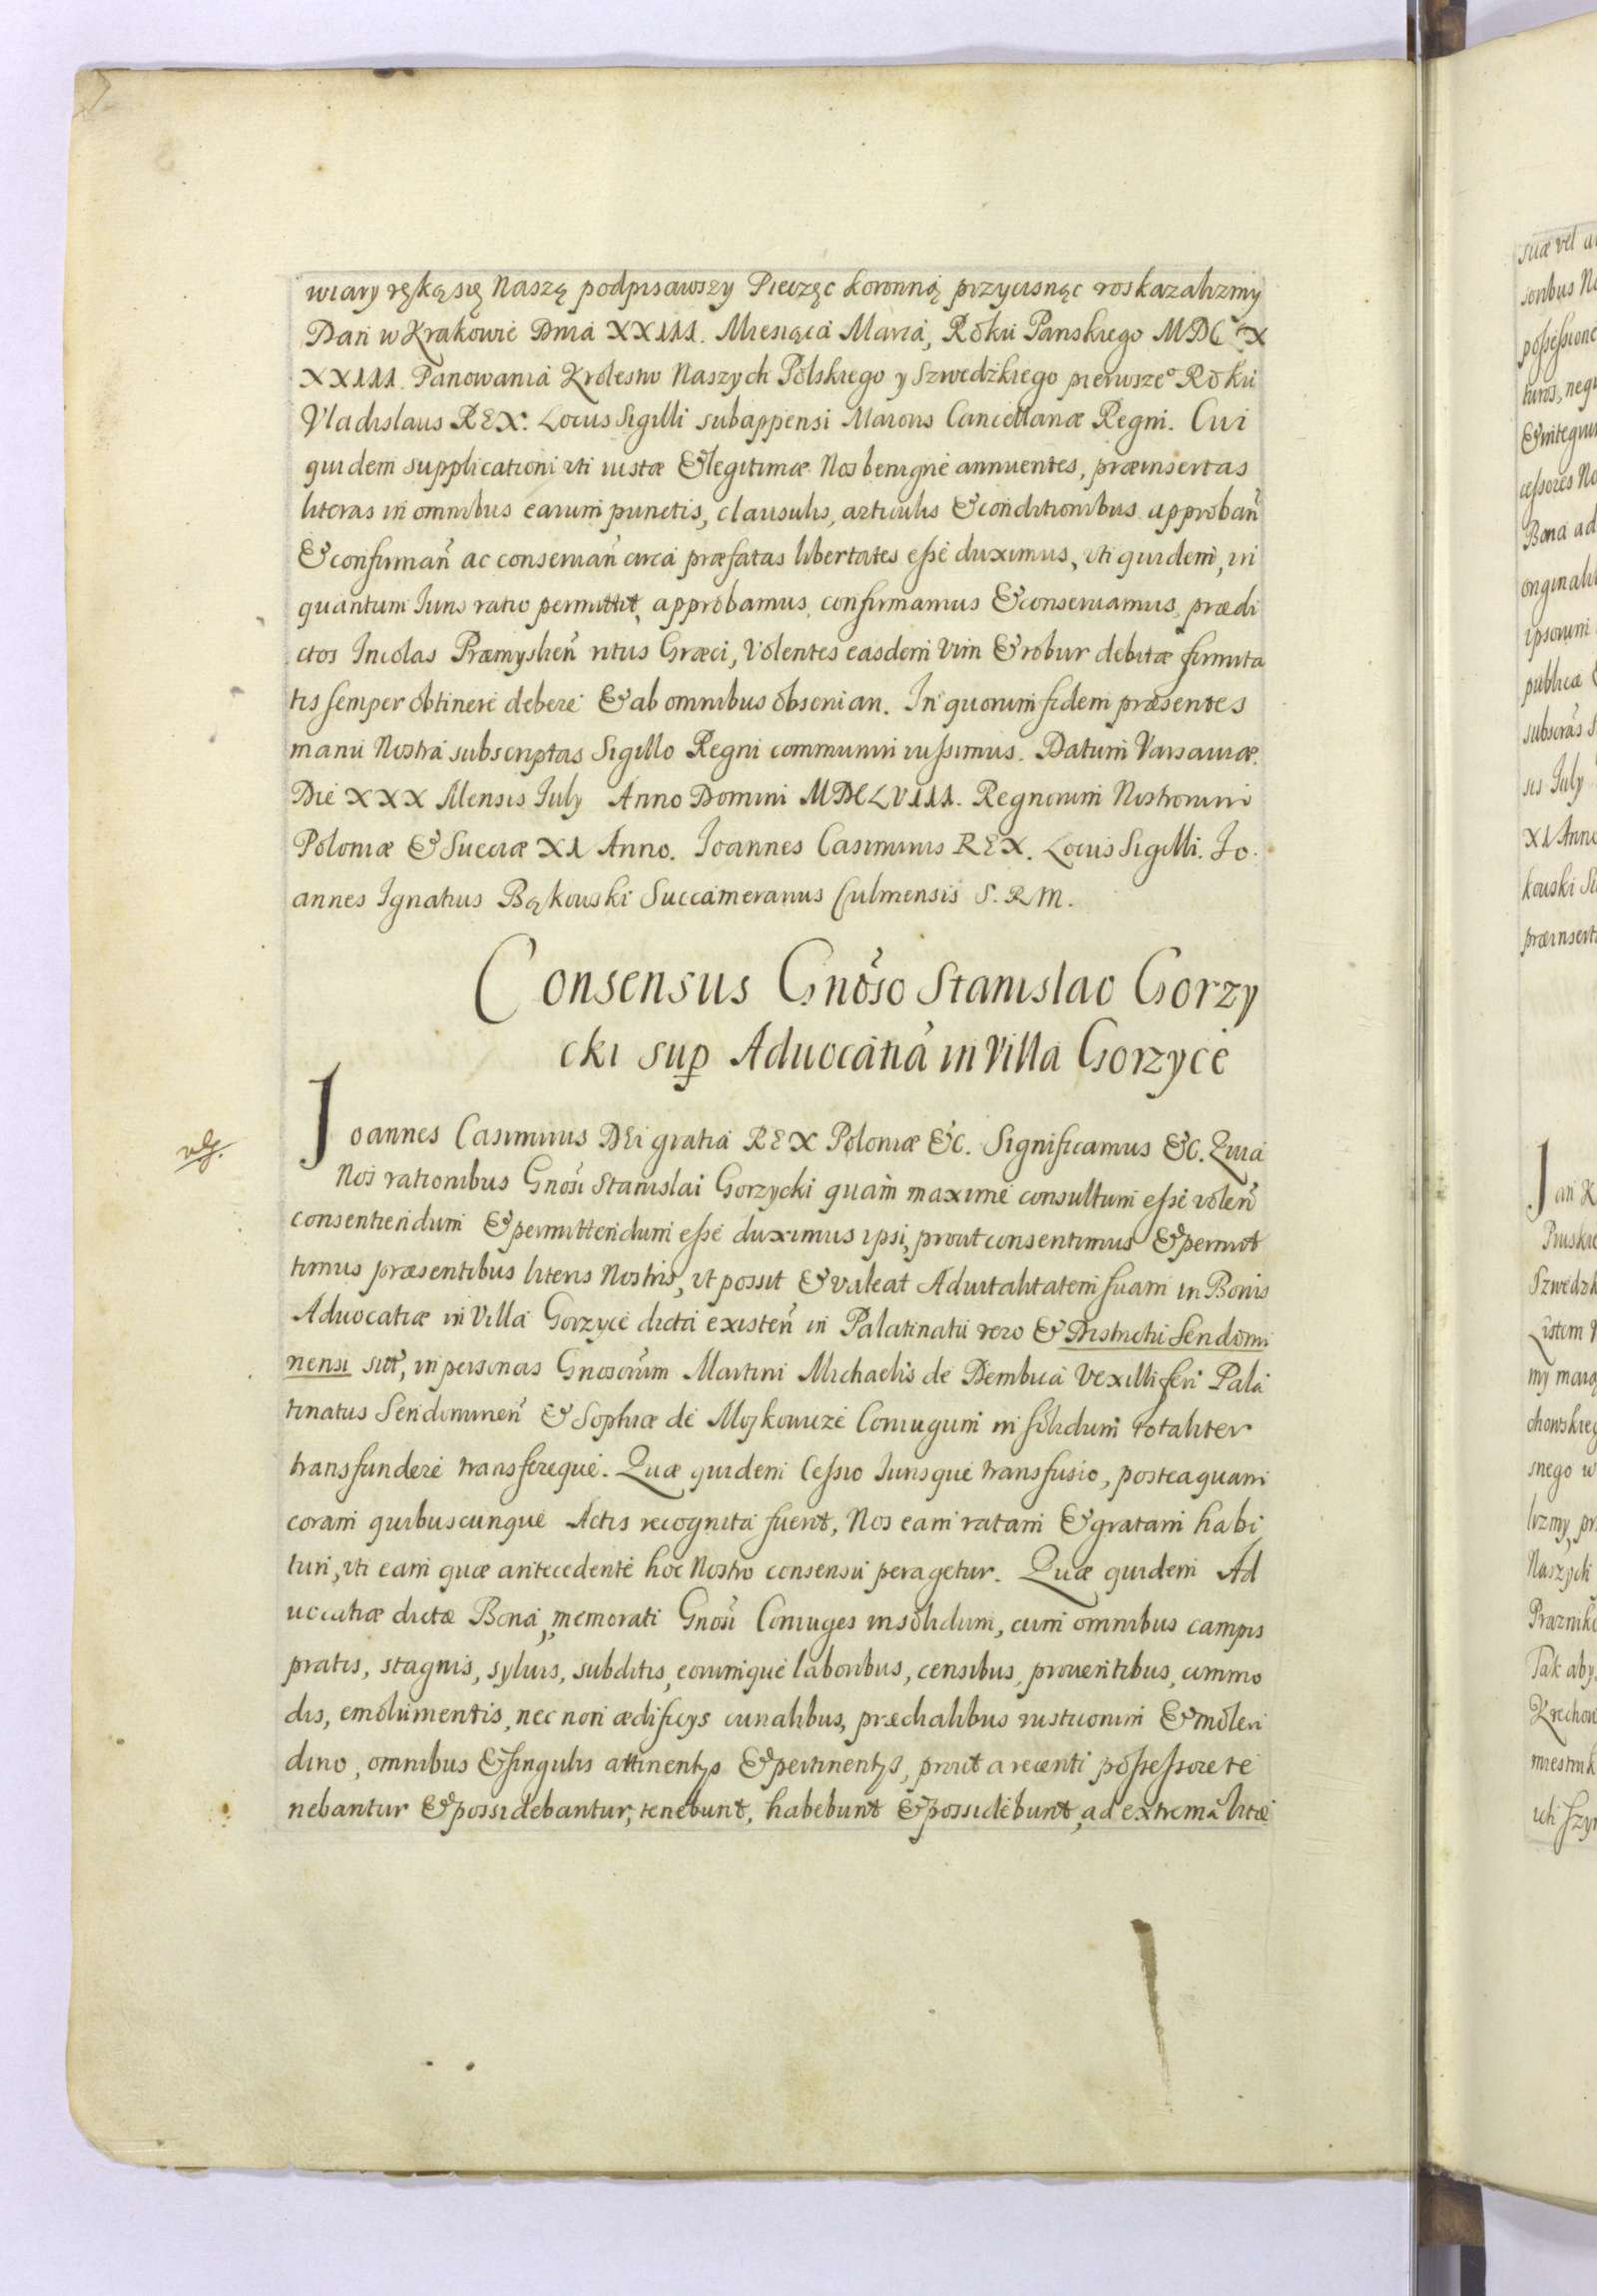 wiary ręką się Naszą podpisawszy Pieczęc koronną przycisnąc roskazalizmy
Dan w Krakowie Dnia XXIII. Miesiąca Marca, Roku Panskiego MDC
XXXIII. Panowania Krolestw Naszych Polskiego y Szwedzkiego pierwszeº Roku
Vladislaus REX. Locus Sigilli subappensi Maioris Cancellariæ Regni. Cui
quidem supplicationi uti iustæ & legitimæ Nos benigne annuentes, præinsertas
literas in omnibus earum punctis, clausulis, articulis & conditionibus approbañ
& confirmañ ac conseruañ circa præfatas libertates esse duximus, uti quidem, in
quantum Iuris ratio permittit, approbamus, confirmamus & conseruamus, prædi
ctos Incolas Præmyslieñ ritus Græci, Volentes easdem vim & robur debitæ firmita
tis semper obtinere debere & ab omnibus obseruari. In quorum fidem præsentes
manu Nostra subscriptas Sigillo Regni communiri iussimus. Datum Varsauiæ.
Die XXX Mensis July Anno Domini MDCLVIII. Regnorum Nostrorum
Poloniæ & Sueciæ XI Anno. Ioannes Casimirus REX. Locus Sigilli. Io
annes Ignatius Bąkowski Succamerarius Culmensis S. R M.
Consensus Gnoso Stanislao Gorzy
cki sup Aduocatia in Villa Gorzyce
Ioannes Casimirus DEi gratia REX Poloniæ &c. Significamus &c. Quia
Nos rationibus Gnosi Stanislai Gorzycki quam maxime consultum esse voleñ
consentiendum & permittendum esse duximus ipsi, prout consentimus & permit
timus præsentibus literis Nostris, ut possit & valeat Aduitalitatem suam in Bonis
Aduocatiæ in Villa Gorzyce dicta existeñ in Palatinatu vero & Districtu Sendomi
nensi sit, in personas Gnosorum Martini Michaelis de Dembica Vexilliferi Pala
tinatus Sendomineñ & Sophiæ de Moskowize Coniugum in solidum totaliter
transfundere transfereque. Quæ quidem Cessio Iurisque transfusio, posteaquam
coram quibuscunque Actis recognita fuerit, Nos eam ratam & gratam habi
turi, uti eam quæ antecedente hoc Nostro consensu peragetur. Quæ quidem Ad
uocatiæ dictæ Bona, memorati Gnosi Coniuges in solidum, cum omnibus campis
pratis, stagnis, syluis, subditis, eorumque laboribus, censibus, prouentibus, commo
dis, emolumentis, nec non ædificys curialibus, prædialibus rusticorum & molen
dino, omnibus & singulis attinentys & pertinentys, prout a recenti possessore te
nebantur & possidebantur, tenebunt, habebunt & possidebunt, ad extrema vitæ